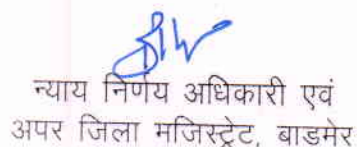 न्याय निर्णय अधिकारी एवं
अपर जिला मजिस्ट्रेट, बाडमेर